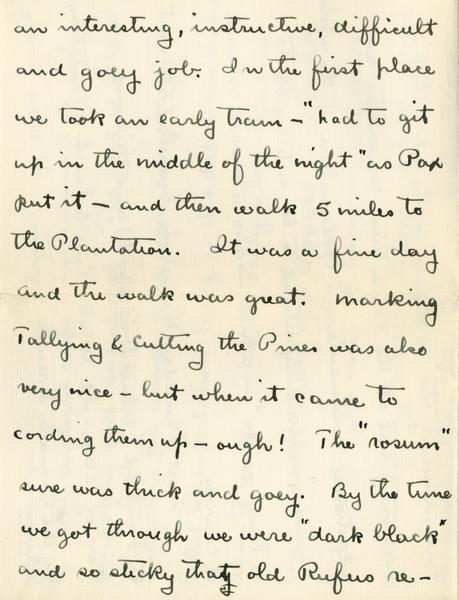 an interesting, instructive, difficult
and goey job. In the first place
we took an early train - "had to git
up in the middle of the night" as Pax
put it - and then walk 5 miles to
the Plantation. It was a fine day
and the walk was great. Marking
Tallying & Cutting the Pines was also
very nice - but when it came to
cording them up - ough! The "rosum"
sure was thick and goey. By the time
we got through we were "dark black"
and so sticky that old Rufus re-